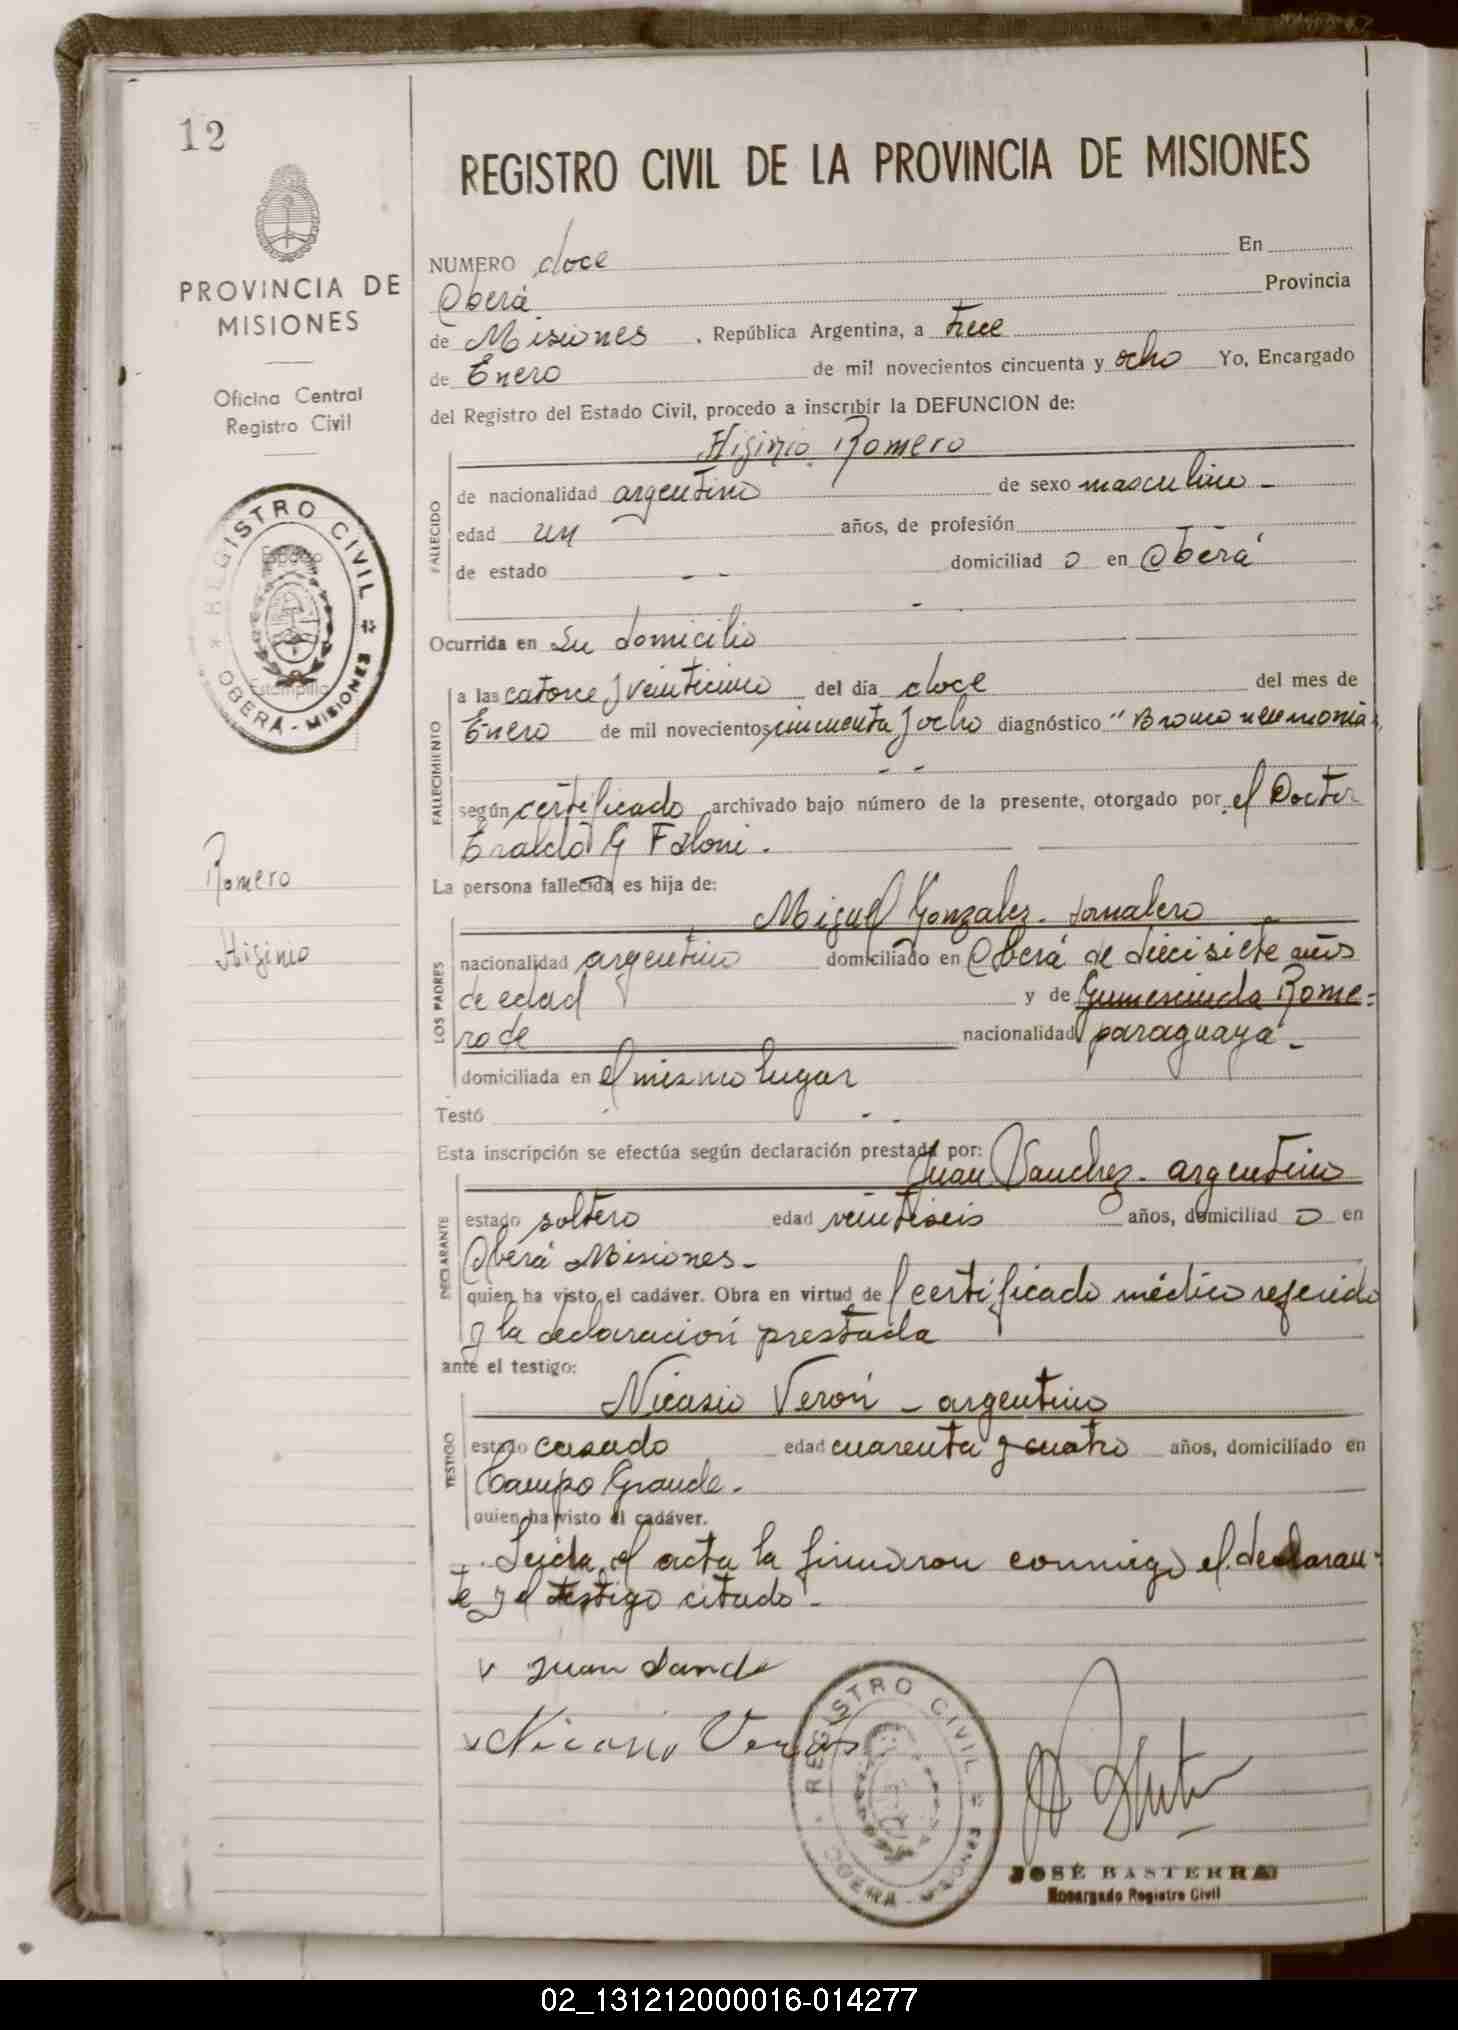 12
REGISTRO CIVIL DE LA PROVINCIA DE MISIONES
PROVINCIA DE
MISIONES
Oficina Central
Registro Civil
REGISTRO CIVIL
OBERÁ - MISIONES
Estampilla
Romero
Higinio
NUMERO doce En
Oberá Provincia
de Misiones , República Argentina, a trece
de Enero de mil novecientos cincuenta y ocho Yo, Encargado
del Registro del Estado Civil, procedo a inscribir la DEFUNCION de:
Higinio Romero
FALLECIDO
de nacionalidad argentino de sexo masculino -
edad un años, de profesión
de estado - - domiciliad o en Oberá
-
Ocurrida en su domicilio
FALLECIMIENTO
a las catorce y veinticinco del día doce del mes de
Enero de mil novecientos cincuenta y ocho diagnóstico "Bronconeumonia"
- -
según certificado archivado bajo número de la presente, otorgado por el Doctor
Eraldo G
La persona fallecida es hija de:
LOS PADRES
Miguel Gonzalez - Jornalero
nacionalidad argentino domiciliado en Oberá de diecisiete años
de edad y de Gumersinda Rome=
ro de nacionalidad paraguaya -
domiciliada en el mismo lugar
Testó - -
Esta inscripción se efectúa según declaración prestada por:
DECLARANTE
Juan Sanchez - argentino
estado soltero edad veintiseis años, domiciliad o en
Oberá Misiones -
quien ha visto el cadáver. Obra en virtud de l certificado médico referido
y la declaración prestada
ante el testigo:
TESTIGO
Nicasio Verón - argentino
estado casado edad cuarenta y cuatro años, domiciliado en
Campo Grande.
quien ha visto el cadáver.
Leida el acta la firmaron conmigo el declaran-
te y el testigo citado -
v Juan Sanch
v Nicasio
REGISTRO CIVIL
OBERÁ - MISIONES
JOSÉ BASTERRA
Encargado Registro Civil
02_131212000016-014277